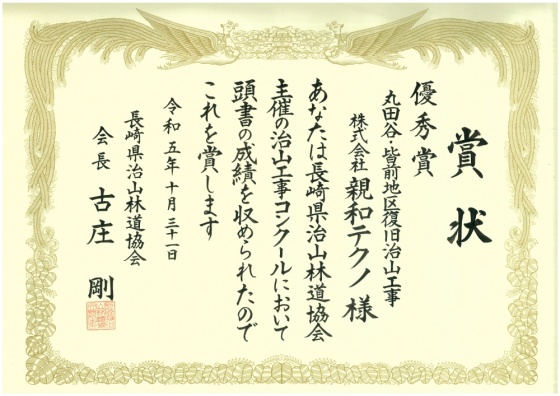 賞状
優秀賞
丸田谷・皆前地区復旧治山工事
株式会社 親和テクノ 様
あなたは長崎県治山林道協会
主催の治山工事コンクールにおいて
頭書の成績を収められたので
これを賞します
令和五年十月三十一日
長崎県治山林道協会
会長 古庄 剛